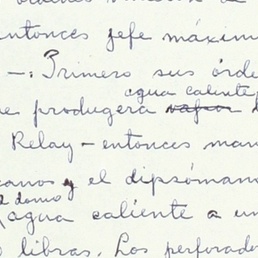 entonces jefe máxim
—: Primero sus órde
agua caliente
e produgera vapor
Relay — entonces man
canos y el dipsóman
domo
agua caliente a un
libras. Los perforado